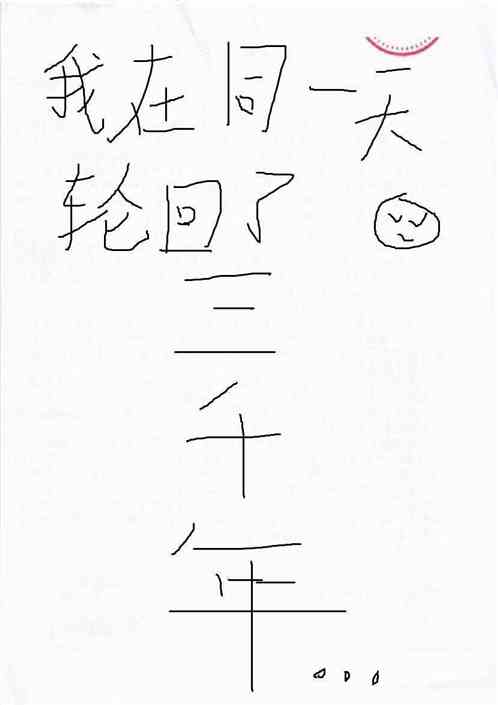 我在同一天
轮回了
三
千
年...